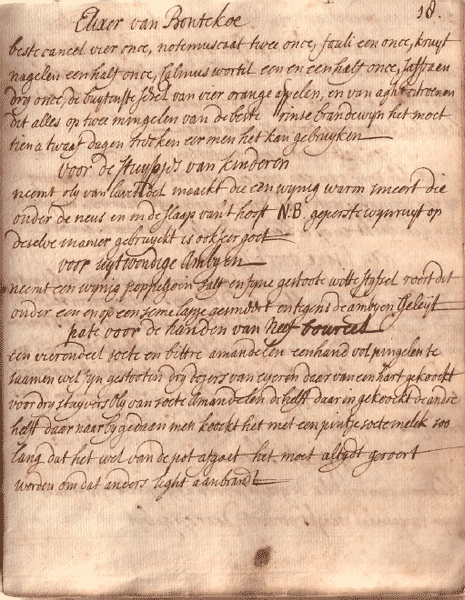 18.
Elixer van Bontekoe
beste caneel vier once, notemuscaat twee once, fauli een once, kruyt
nagelen een half once, Calmus wortil een en een half once, saffraen
dry once, de buytenste schel van vier orange appelen, en van aght citroenen
dit alles op twee mingelen van de beste rinse brandewyn het moet
tien a twaaf dagen trecken eer men het kan gebruyken
voor de stuypjes van kinderen
neemt oly van maeckt die een wynig warm smeert die
onder de neus en in de slaap van't hooft N.B geperste wynruyt op
deselve manier gebruyckt is ook seer goet
voor uytwendige Ambyen
neemt een wynig salf en fyne gestoote witte styfsel roert dit
onder een en op een seme lapje gesmeert en tegens de ambyen geleyt
pate voor de handen van Neef
een vierendeel soete en bittre amandelen een hand vol pingelen te
saamen wel fyn gestooten dry dojers van eyeren daar van een hart gekookt
voor dry stuyvers oly van soete amandelen de helft daar in gekookt de andre
helft daar naer by gedaen men koockt het met een pintje soete melk soo
lang dat het wel van de pot afgaet het moet altydt geroert
worden om dat anders light aanbrandt